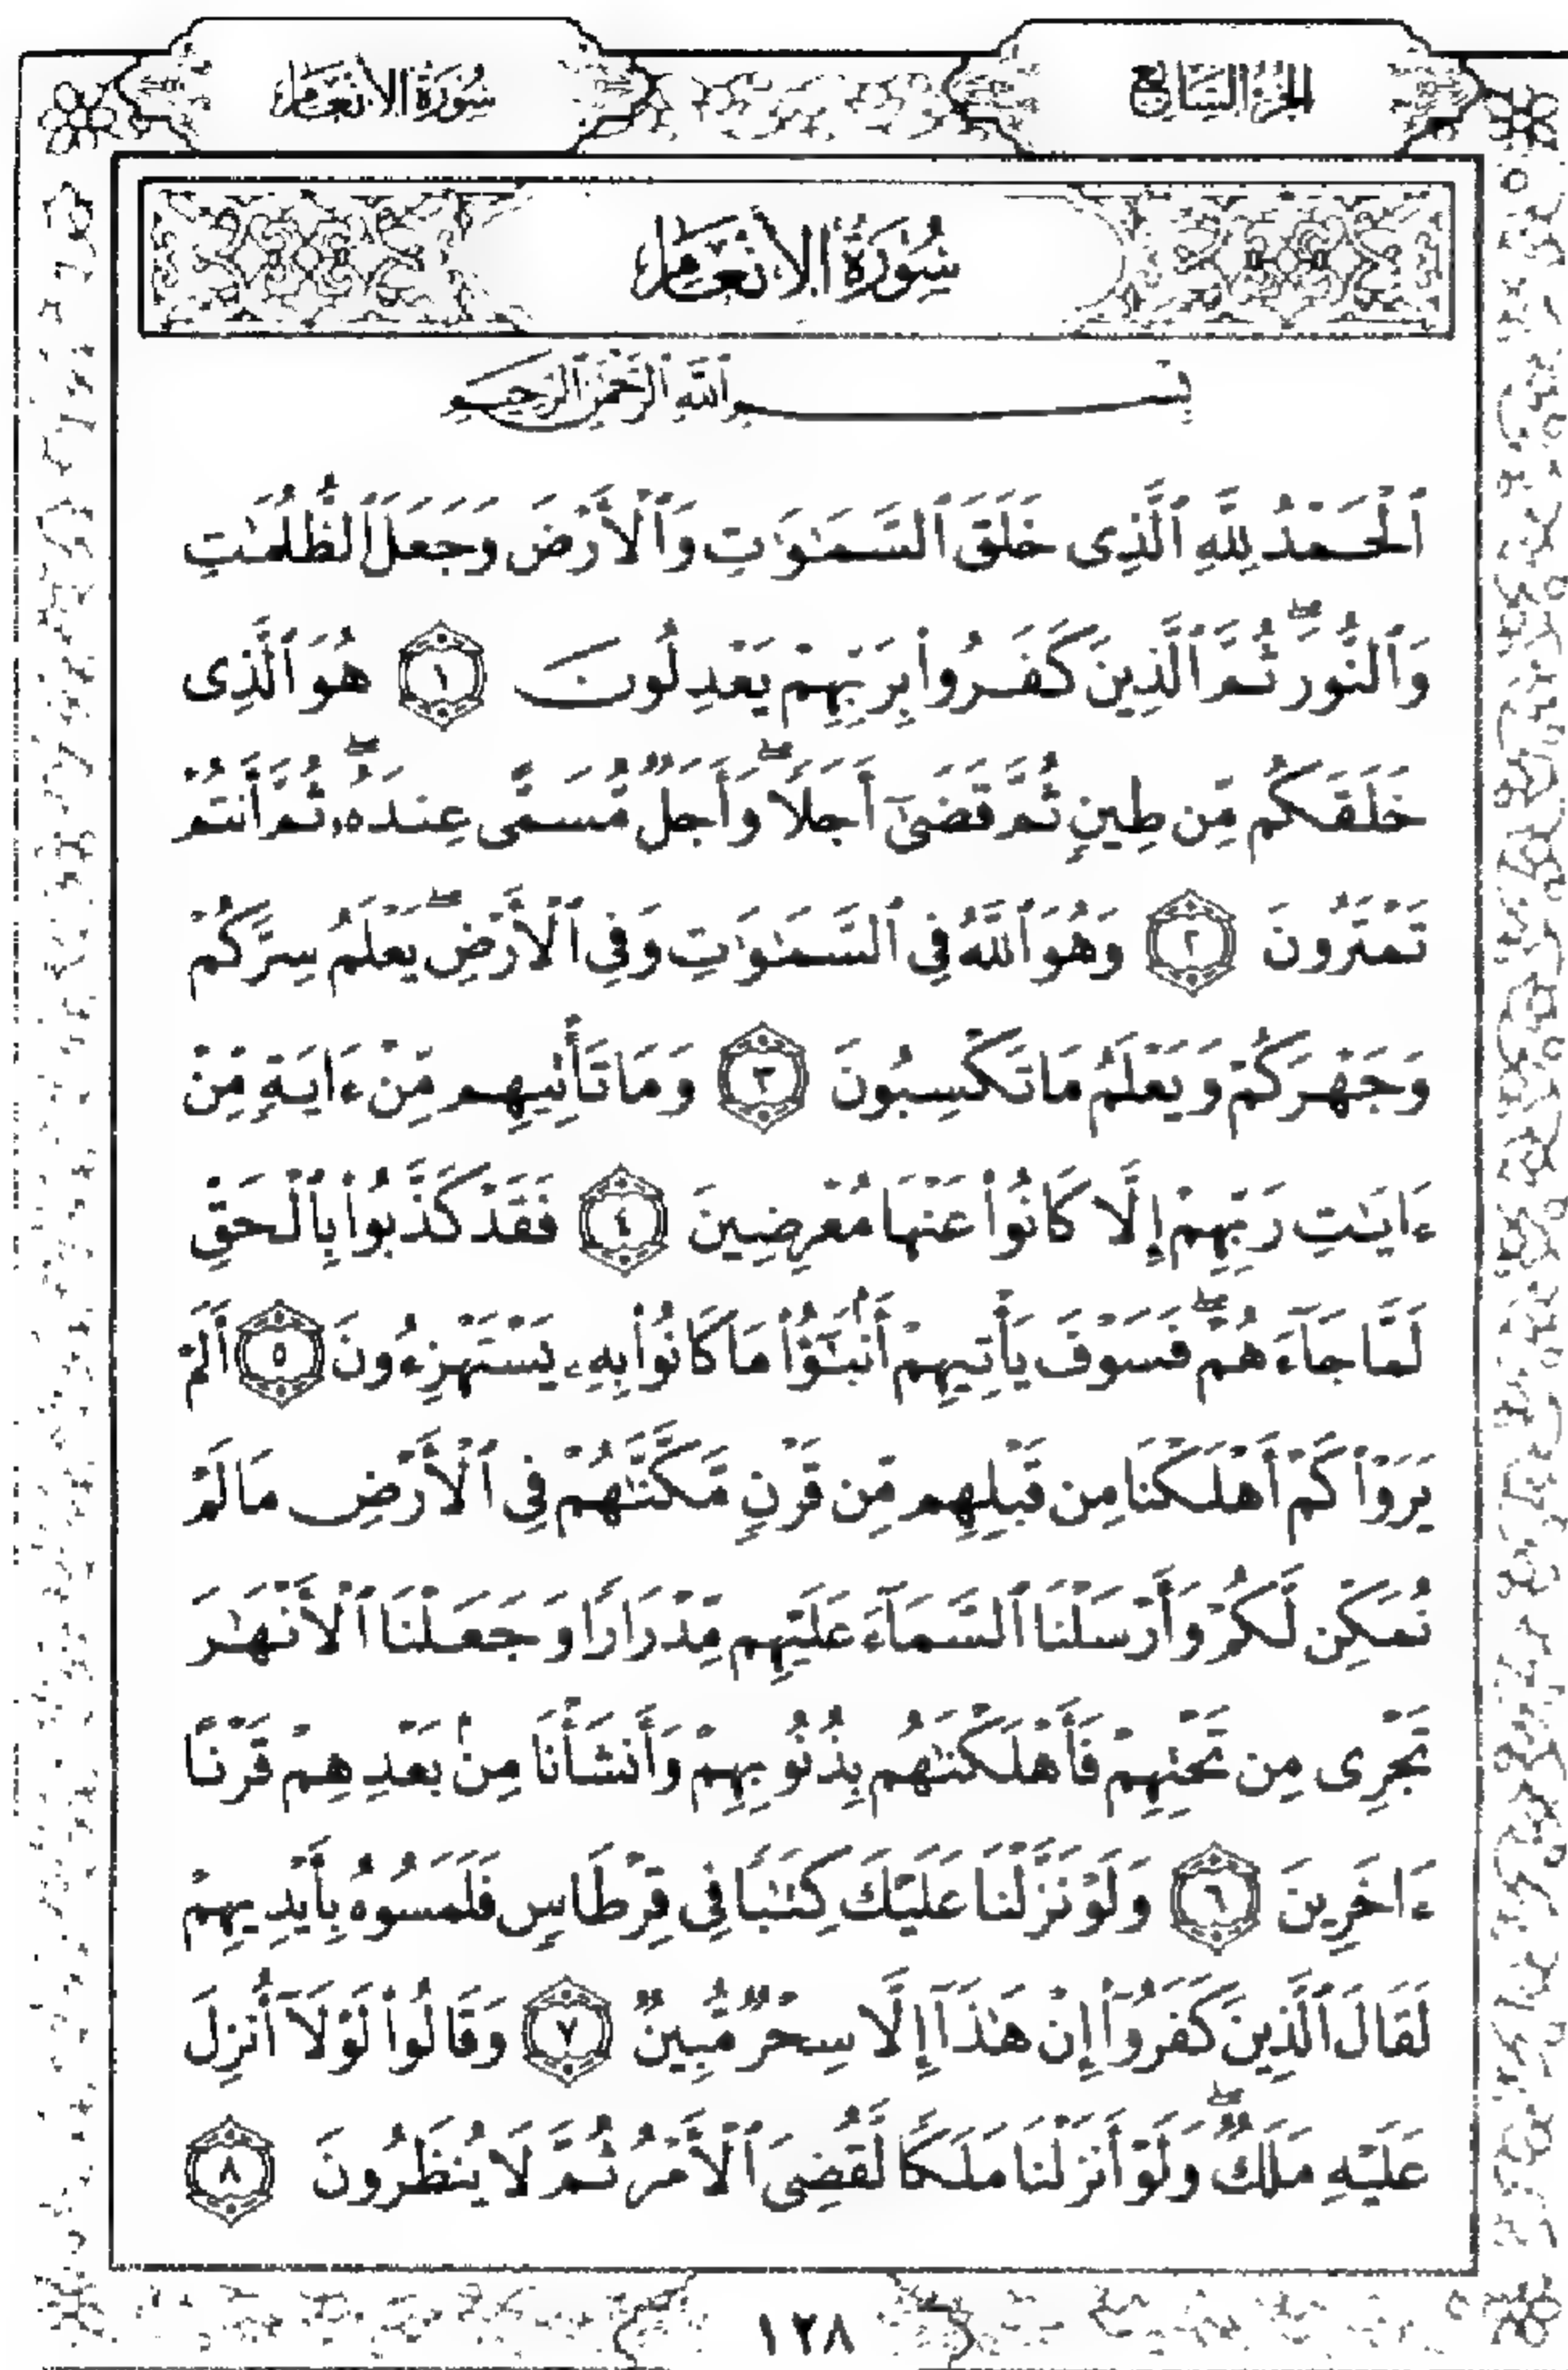 الجزء السابع
سورة الأنعام
سورة الأنعام
بِسْمِ ٱللَّهِ ٱلرَّحْمَٰنِ ٱلرَّحِيمِ
ٱلْحَمْدُ لِلَّهِ ٱلَّذِى خَلَقَ ٱلسَّمَٰوَٰتِ وَٱلْأَرْضَ وَجَعَلَ ٱلظُّلُمَٰتِ
وَٱلنُّورَ ۖ ثُمَّ ٱلَّذِينَ كَفَرُوا۟ بِرَبِّهِمْ يَعْدِلُونَ ١ هُوَ ٱلَّذِى
خَلَقَكُم مِّن طِينٍ ثُمَّ قَضَىٰٓ أَجَلًا ۖ وَأَجَلٌ مُّسَمًّى عِندَهُۥ ۖ ثُمَّ أَنتُمْ
تَمْتَرُونَ ٢ وَهُوَ ٱللَّهُ فِى ٱلسَّمَٰوَٰتِ وَفِى ٱلْأَرْضِ ۖ يَعْلَمُ سِرَّكُمْ
وَجَهْرَكُمْ وَيَعْلَمُ مَا تَكْسِبُونَ ٣ وَمَا تَأْتِيهِم مِّنْ ءَايَةٍ مِّنْ
ءَايَٰتِ رَبِّهِمْ إِلَّا كَانُوا۟ عَنْهَا مُعْرِضِينَ ٤ فَقَدْ كَذَّبُوا۟ بِٱلْحَقِّ
لَمَّا جَآءَهُمْ ۖ فَسَوْفَ يَأْتِيهِمْ أَنۢبَٰٓؤُا۟ مَا كَانُوا۟ بِهِۦ يَسْتَهْزِءُونَ ٥ أَلَمْ
يَرَوْا۟ كَمْ أَهْلَكْنَا مِن قَبْلِهِم مِّن قَرْنٍ مَّكَّنَّٰهُمْ فِى ٱلْأَرْضِ مَا لَمْ
نُمَكِّن لَّكُمْ وَأَرْسَلْنَا ٱلسَّمَآءَ عَلَيْهِم مِّدْرَارًا وَجَعَلْنَا ٱلْأَنْهَٰرَ
تَجْرِى مِن تَحْتِهِمْ فَأَهْلَكْنَٰهُم بِذُنُوبِهِمْ وَأَنشَأْنَا مِنۢ بَعْدِهِمْ قَرْنًا
ءَاخَرِينَ ٦ وَلَوْ نَزَّلْنَا عَلَيْكَ كِتَٰبًا فِى قِرْطَاسٍ فَلَمَسُوهُ بِأَيْدِيهِمْ
لَقَالَ ٱلَّذِينَ كَفَرُوٓا۟ إِنْ هَٰذَآ إِلَّا سِحْرٌ مُّبِينٌ ٧ وَقَالُوا۟ لَوْلَآ أُنزِلَ
عَلَيْهِ مَلَكٌ ۖ وَلَوْ أَنزَلْنَا مَلَكًا لَّقُضِىَ ٱلْأَمْرُ ثُمَّ لَا يُنظَرُونَ ٨
١٢٨